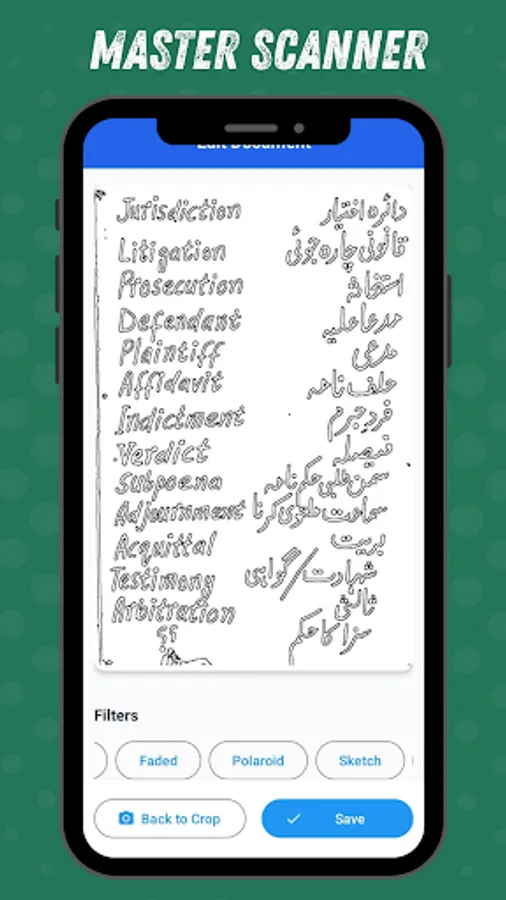 MASTER SCANNER
Edit Document
Jurisdiction دائرہ اختیار
Litigation قانونی چارہ جوئی
Prosecution استغاثہ
Defendant مدعا علیہ
Plaintiff مدعی
Affidavit حلف نامہ
Indictment فرد جرم
Verdict فیصلہ
Subpoena سمن طلبی حکم نامہ
Adjournment سماعت ملتوی کرنا
Acquittal بریت
Testimony شہادت/گواہی
Arbitration ثالثی
؟؟ سزا کا حکم
Filters
Faded Polaroid Sketch
Back to Crop Save